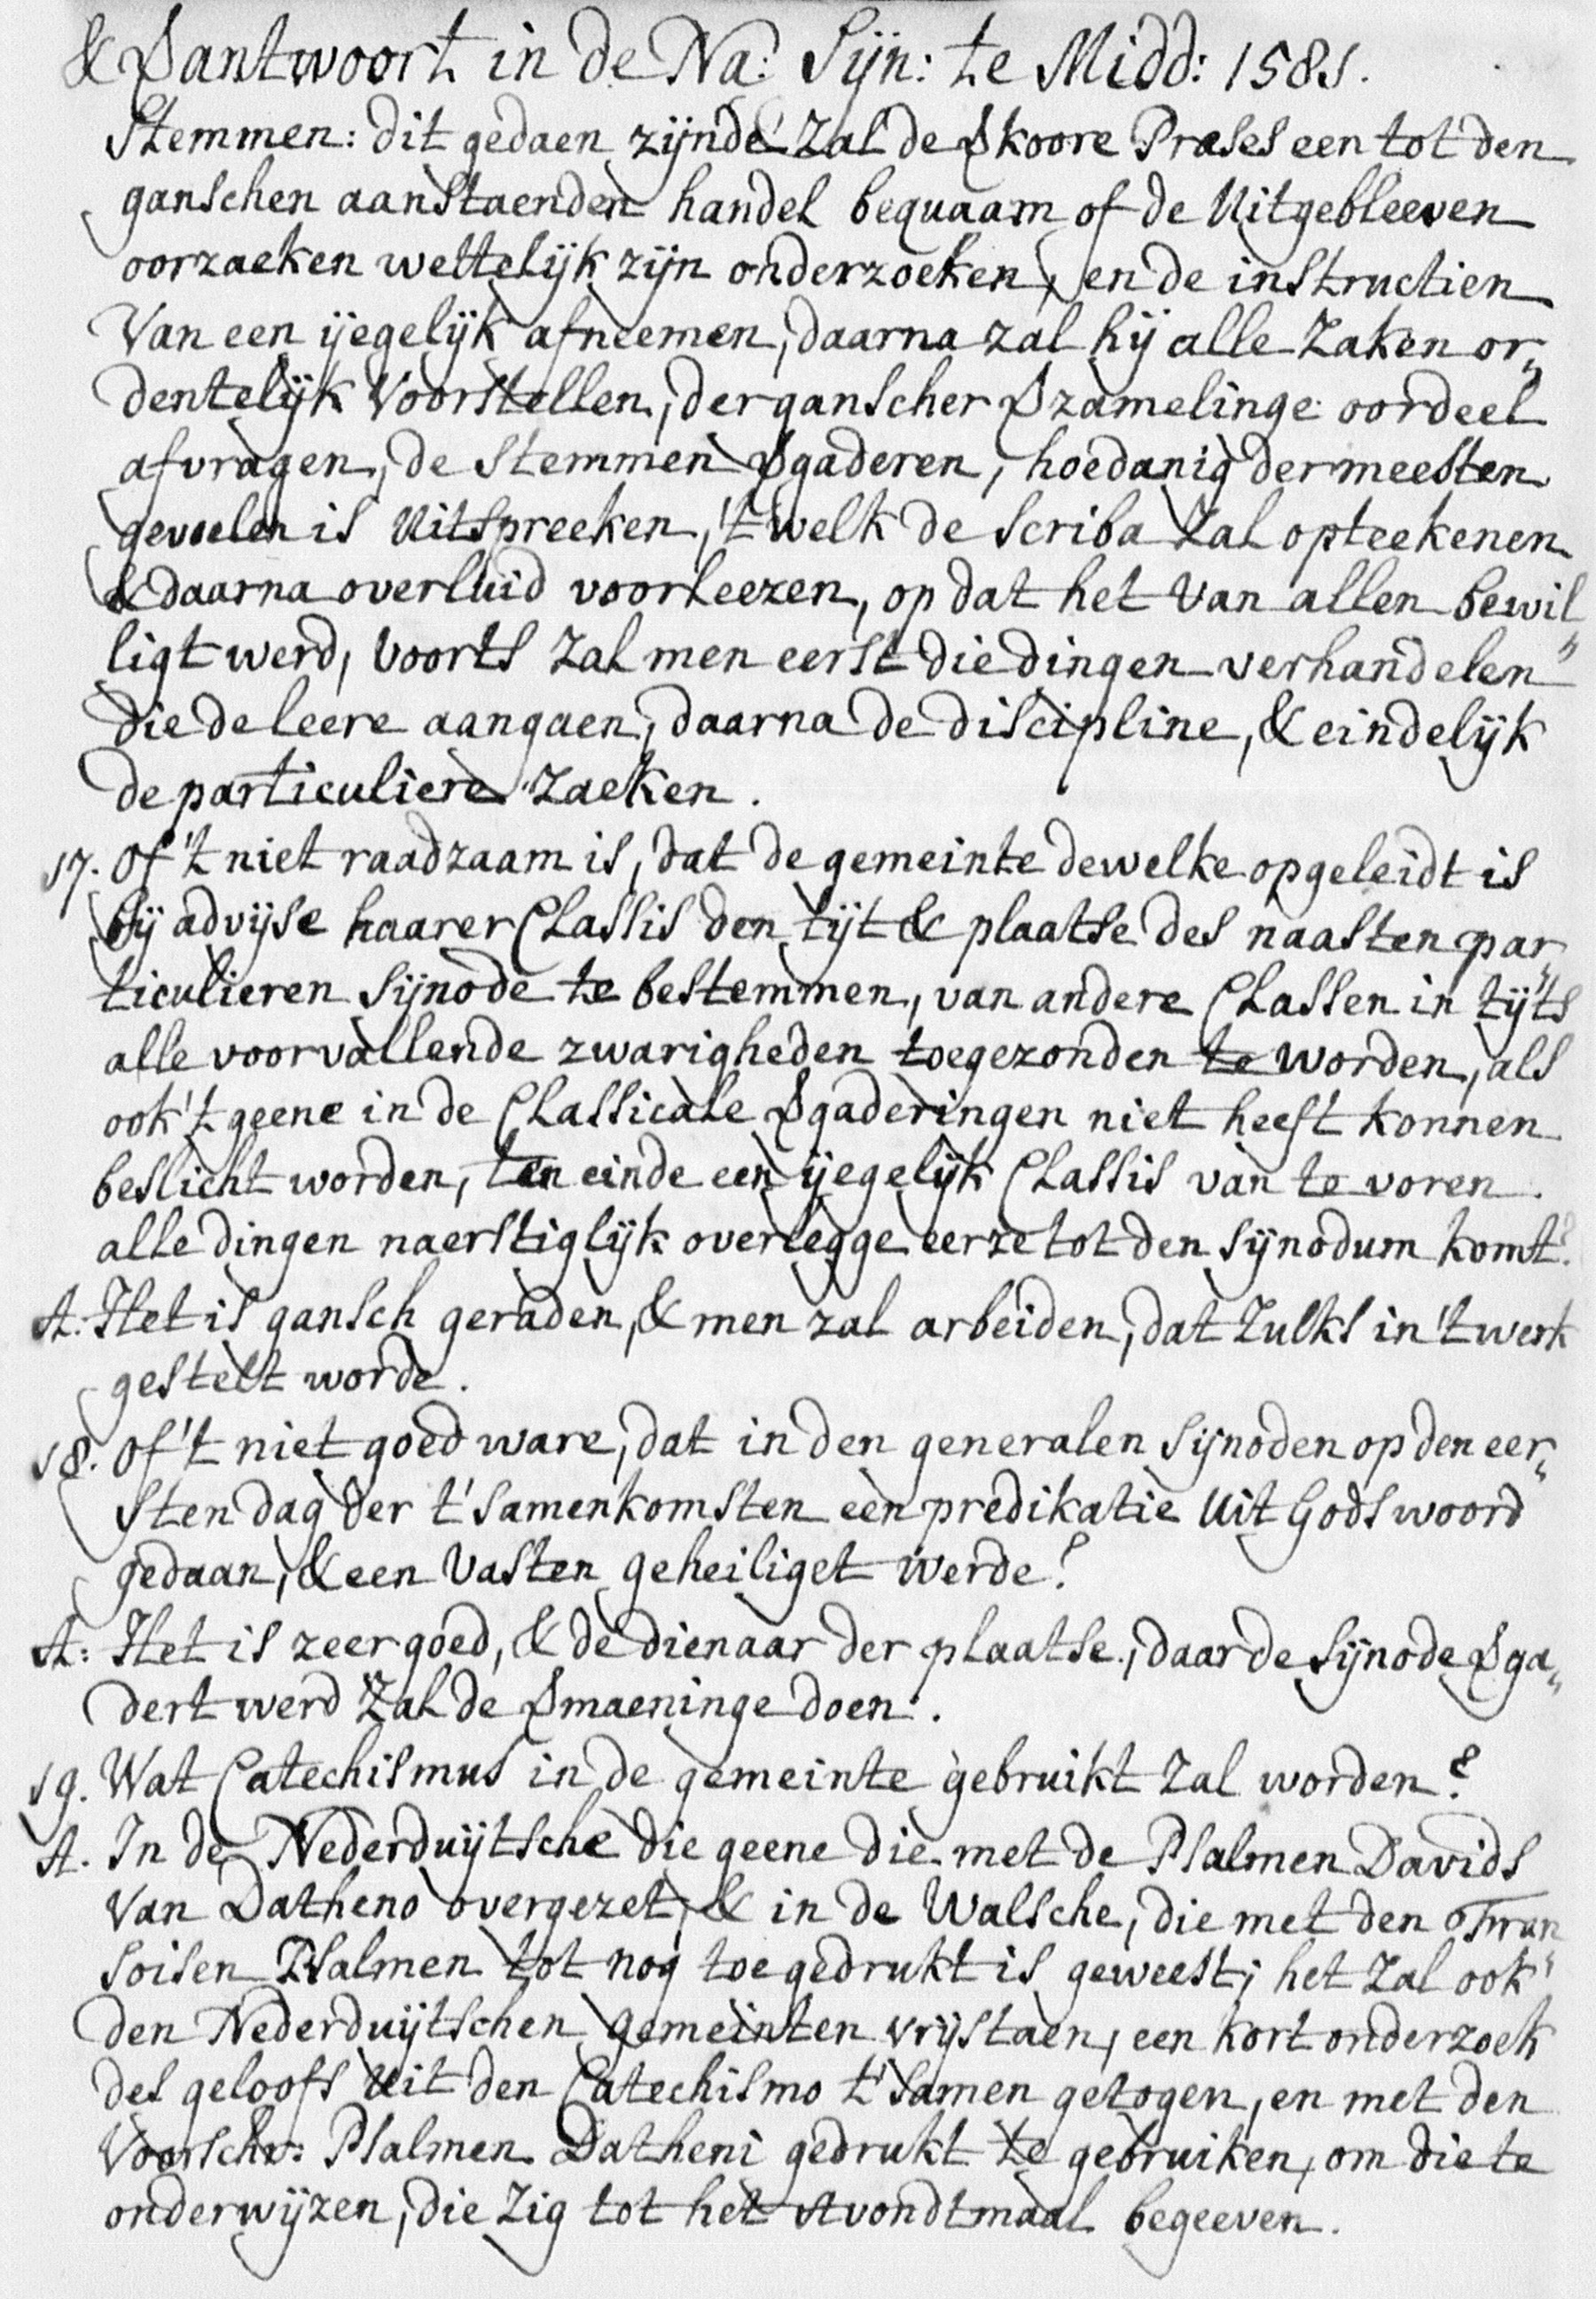 & Vantwoort in de Na: Sijn: te Midd: 1581.
Stemmen: dit gedaen zijnde zal de Vkoore Præses een tot den
ganschen aanstaenden handel bequaam of de Uitgebleeven
oorzaeken wettelijk zijn onderzoeken, en de instructien
Van een ijegelijk afneemen, daarna zal hij alle Zaken or„
dentelijk Voorstellen, der ganscher Vzamelinge oordeel
afvragen, de stemmen Vgaderen, hoedanig der meesten
gevoelen is Uitspreeken, 't welk de scriba Zal opteekenen
& daarna overluid voorleezen, op dat het Van allen bewil„
ligt werd, Voorts Zal men eerst die dingen verhandelen
die de leere aangaen, daarna de discipline, & eindelijk
de particuliere Zaeken.
17. Of 't niet raadzaam is, dat de gemeinte dewelke opgeleidt is
bij advijse haarer Classis den tijt & plaatse des naasten par„
ticulieren Sijnode te bestemmen, van andere Classen in tijts
alle voorvallende zwarigheden toegezonden te worden, als
ook 't geene in de Classicale Vgaderingen niet heeft konnen
beslicht worden, ten einde een ijegelijk Classis van te voren
alle dingen naerstiglijk overlegge eer ze tot den Sijnodum komt?
A: Het is gansch geraden, & men zal arbeiden, dat Zulks in 't werk
gestelt worde.
18. Of 't niet goed ware, dat in den generalen Sijnoden op den eer„
sten dag der t'samenkomsten een predikatie Uit Gods woord
gedaan, & een Vasten geheiliget werde?
A: Het is zeer goed, & de dienaar der plaatse, daar de Sijnode Vga„
dert werd Zal de Vmaeninge doen.
19. Wat Catechismus in de gemeinte gebruikt Zal worden?
A. In de Nederduijtsche die geene die met de Psalmen Davids
Van Datheno overgezet, & in de Walsche, die met den Fran„
soisen Psalmen tot nog toe gedrukt is geweest; het Zal ook
den Nederduijtschen gemeinten vrijstaen, een kort onderzoek
des geloofs Uit den Catechismo t'samen getogen, en met den
Voorschr: Psalmen Datheni gedrukt te gebruiken, om die te
onderwijzen, die Zig tot het Avondtmaal begeeven.